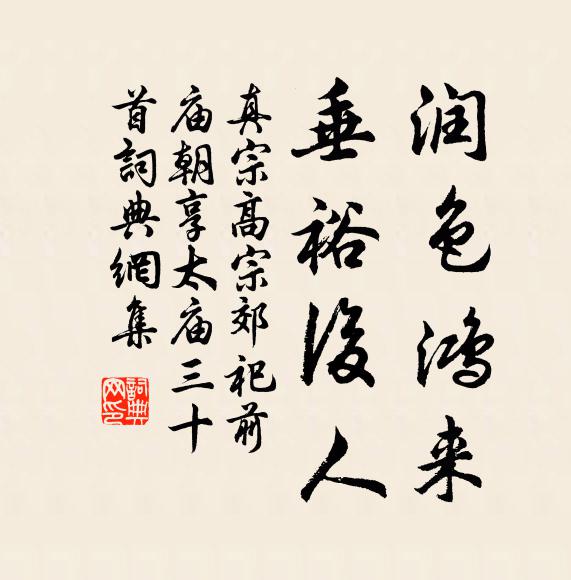 润色鸿来
垂裕後人
真宗高宗郊祀前
庙朝享太庙三十
首詞典網集
詞典網印